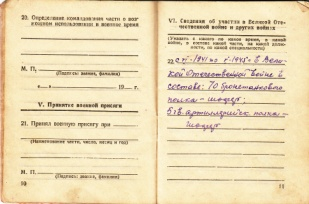 20. Определение командования части о воз-
можном использовании в военное время
М. П.
(Подпись: звание, фамилия)
19 г.
V. Принятие военной присяги
21. Принял военную присягу при
(Наименование части, число, месяц и год)
М. П.
(Подпись: звание, фамилия)
10
VI. Сведения об участии в Великой Оте-
чественной войне и других войнах
(Указать с какого по какое время, в какой
войне, в составе какой части, на какой долж-
ности, по какой специальности)
22. с 1941 по 1945 в Вели-
кой Отечественной войне в
составе: 70 бронетанкового
полка - шофер;
518 артиллерийск полка -
шофер
11